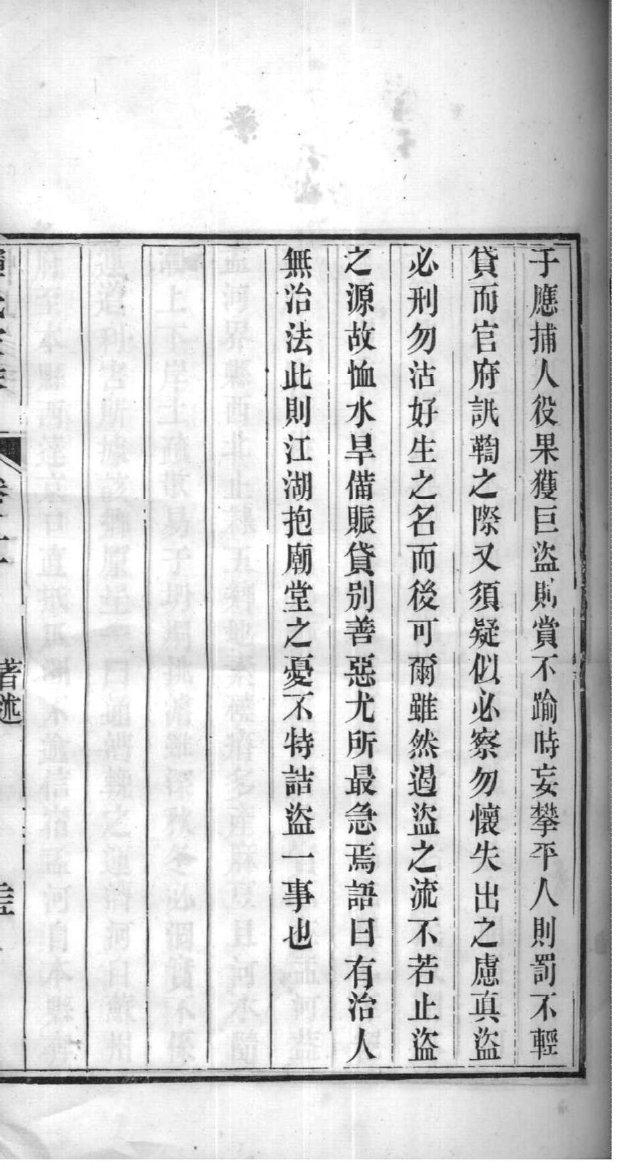 于應捕人役果獲巨盜則賞不踰時妄攀平人則罰不輕
貸而官府訊鞫之際又須疑似必察勿懷失出之慮真盜
必刑勿沽好生之名而後可爾雖然遏盜之流不若止盜
之源故恤水旱備賑貸别善惡尤所最急焉語曰有治人
無治法此則江湖抱廟堂之憂不特詰盜一事也
著述